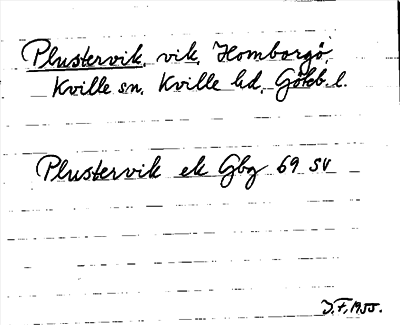 Plustervik, vik, Homborgö,
Kville sn, Kville hd, Götebl.
Plustervik ek Gbg 69 SV
J.F. 1955.